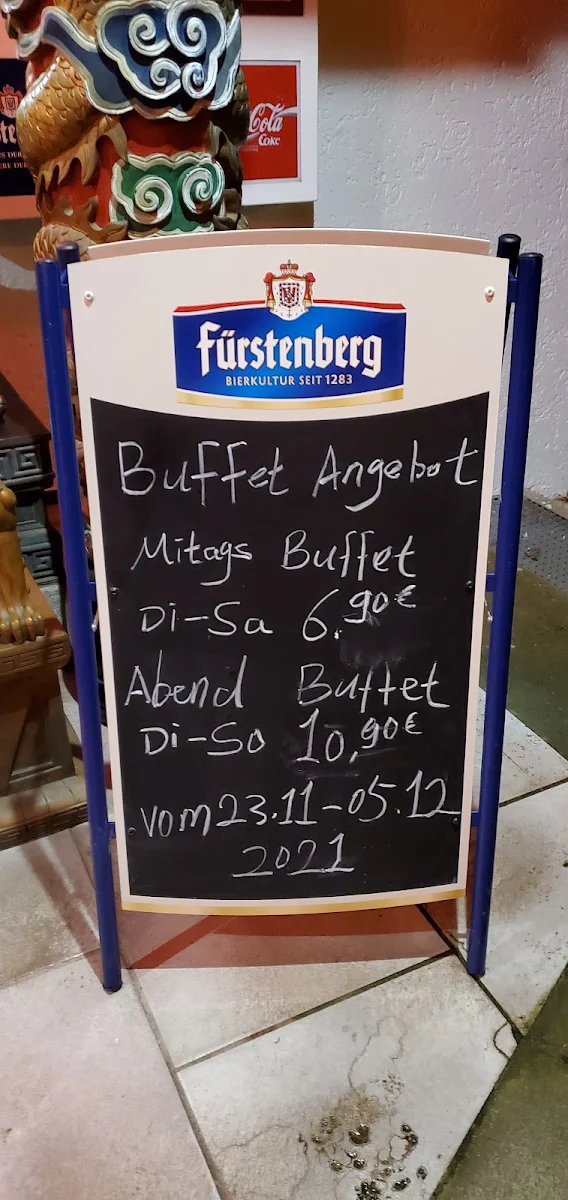 Cola
Coke
Fürstenberg
BIERKULTUR SEIT 1283
Buffet Angebot
Mitags Buffet
Di-Sa 6.90€
Abend Buffet
Di-So 10,90€
vom 23.11-05.12
2021